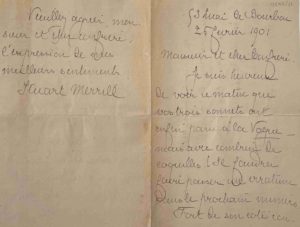 53 Quai de Bourbon
25 février 1901
Monsieur et cher Confrère
Je suis heureux
de voir ce matin que
vos trois sonnets ont
enfin paru à la Vogue
mais avec combien de
coquilles ! Il faudra
faire passer un erratum
dans le prochain numéro
Fort de son
Veuillez agréer, mon
sieur et cher Confrère
l'expression de mes
meilleurs sentiments
Stuart Merrill